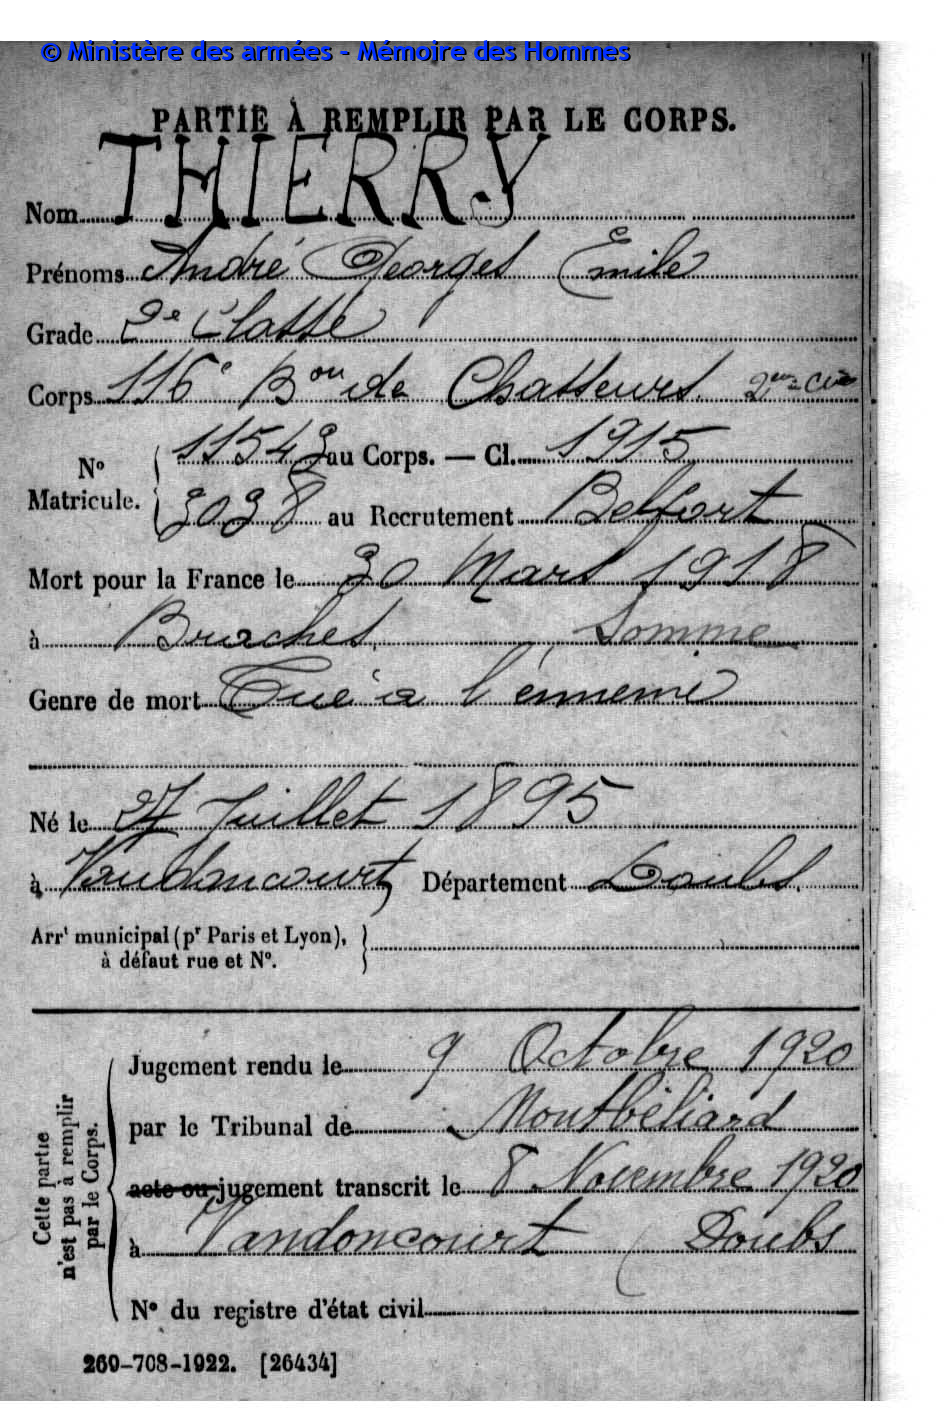 © Ministère des armées - Mémoire des Hommes
PARTIE À REMPLIR PAR LE CORPS.
Nom THIERRY
Prénoms André Georges Emile
Grade 2e Classe
Corps 116e Bon de Chasseurs. 2eme Cie
No Matricule. 11542 au Corps. — Cl. 1915
3038 au Recrutement Belfort
Mort pour la France le 30 Mars 1918
à Braches, Somme
Genre de mort Tué à l'ennemi
Né le 27 Juillet 1895
à Vandoncourt Département Doubs.
Arrt municipal (pr Paris et Lyon),
à défaut rue et No.
Cette partie
n'est pas à remplir
par le Corps.
Jugement rendu le 9 Octobre 1920
par le Tribunal de Montbéliard
acte ou jugement transcrit le 8 Novembre 1920
à Vandoncourt (Doubs
No du registre d'état civil
260-708-1922. [26434]